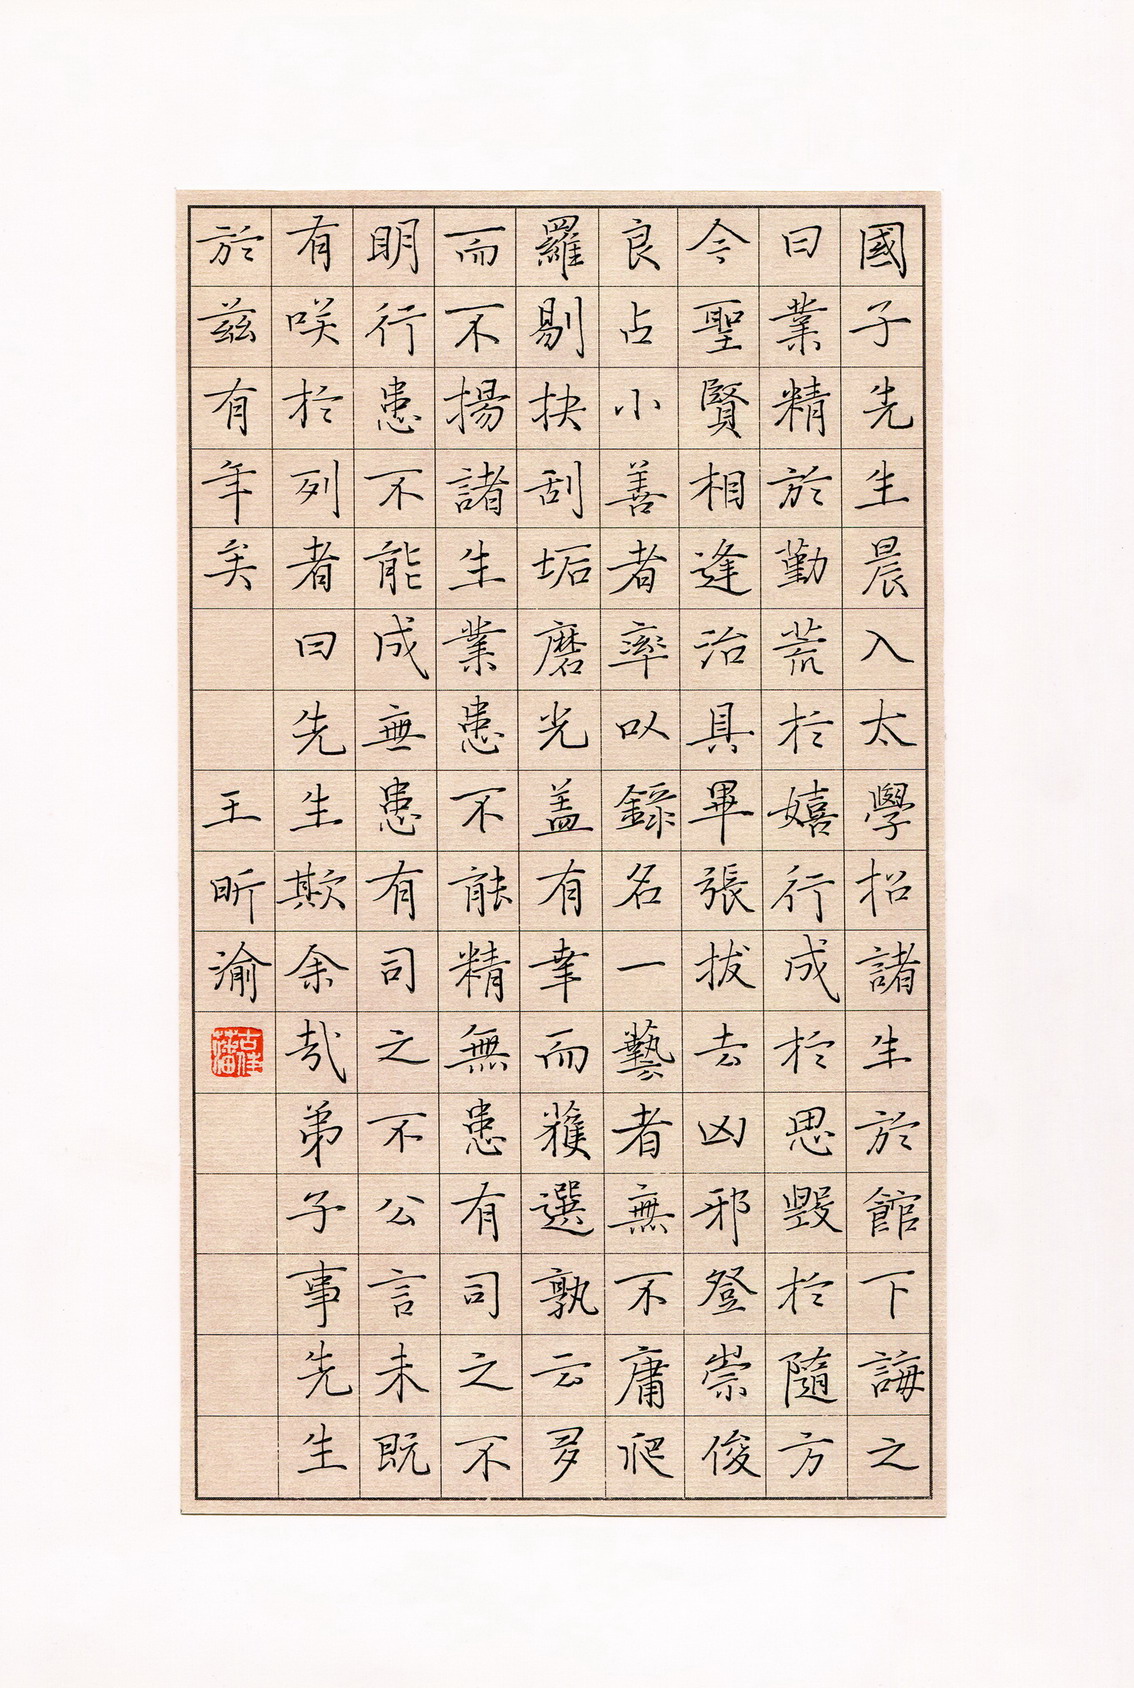 國子先生晨入太學招諸生於館下誨之
曰業精於勤荒於嬉行成於思毀於隨方
今聖賢相逢治具畢張拔去凶邪登崇俊
良占小善者率以錄名一藝者無不庸爬
羅剔抉刮垢磨光盖有幸而獲選孰云多
而不揚諸生業患不能精無患有司之不
明行患不能成無患有司之不公言未既
有咲於列者曰先生欺余哉弟子事先生
於兹有年矣 王昕渝